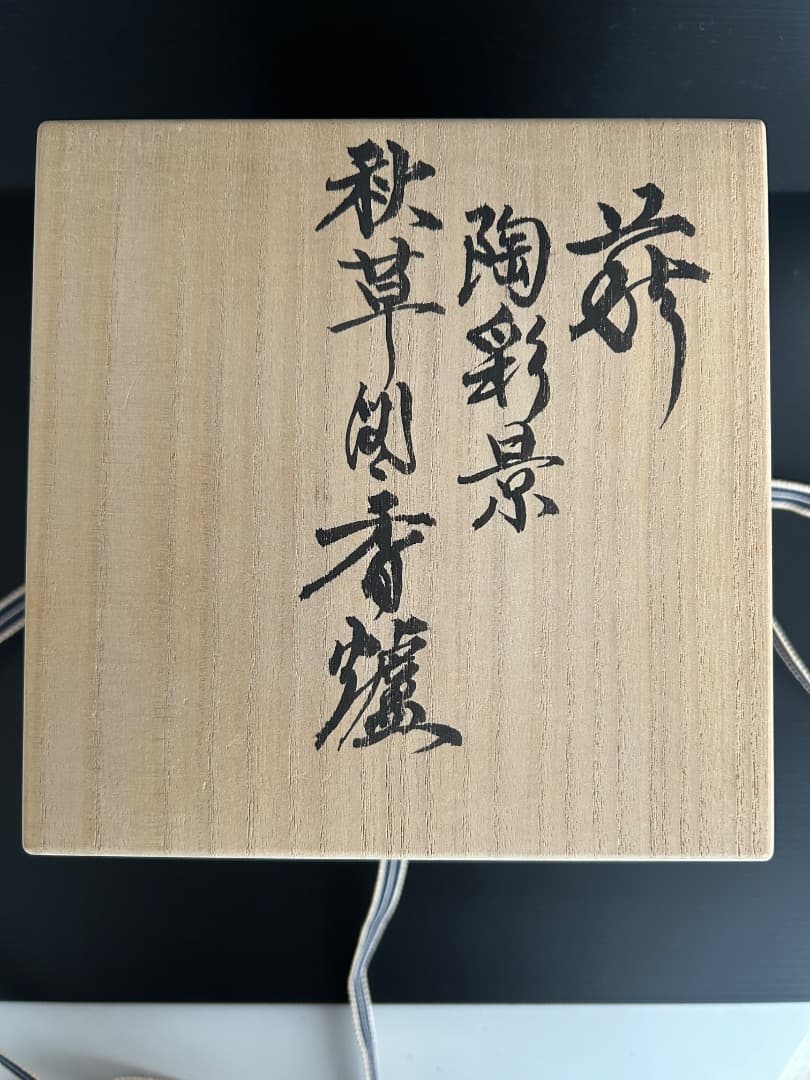 萩
陶彩景
秋草図香爐